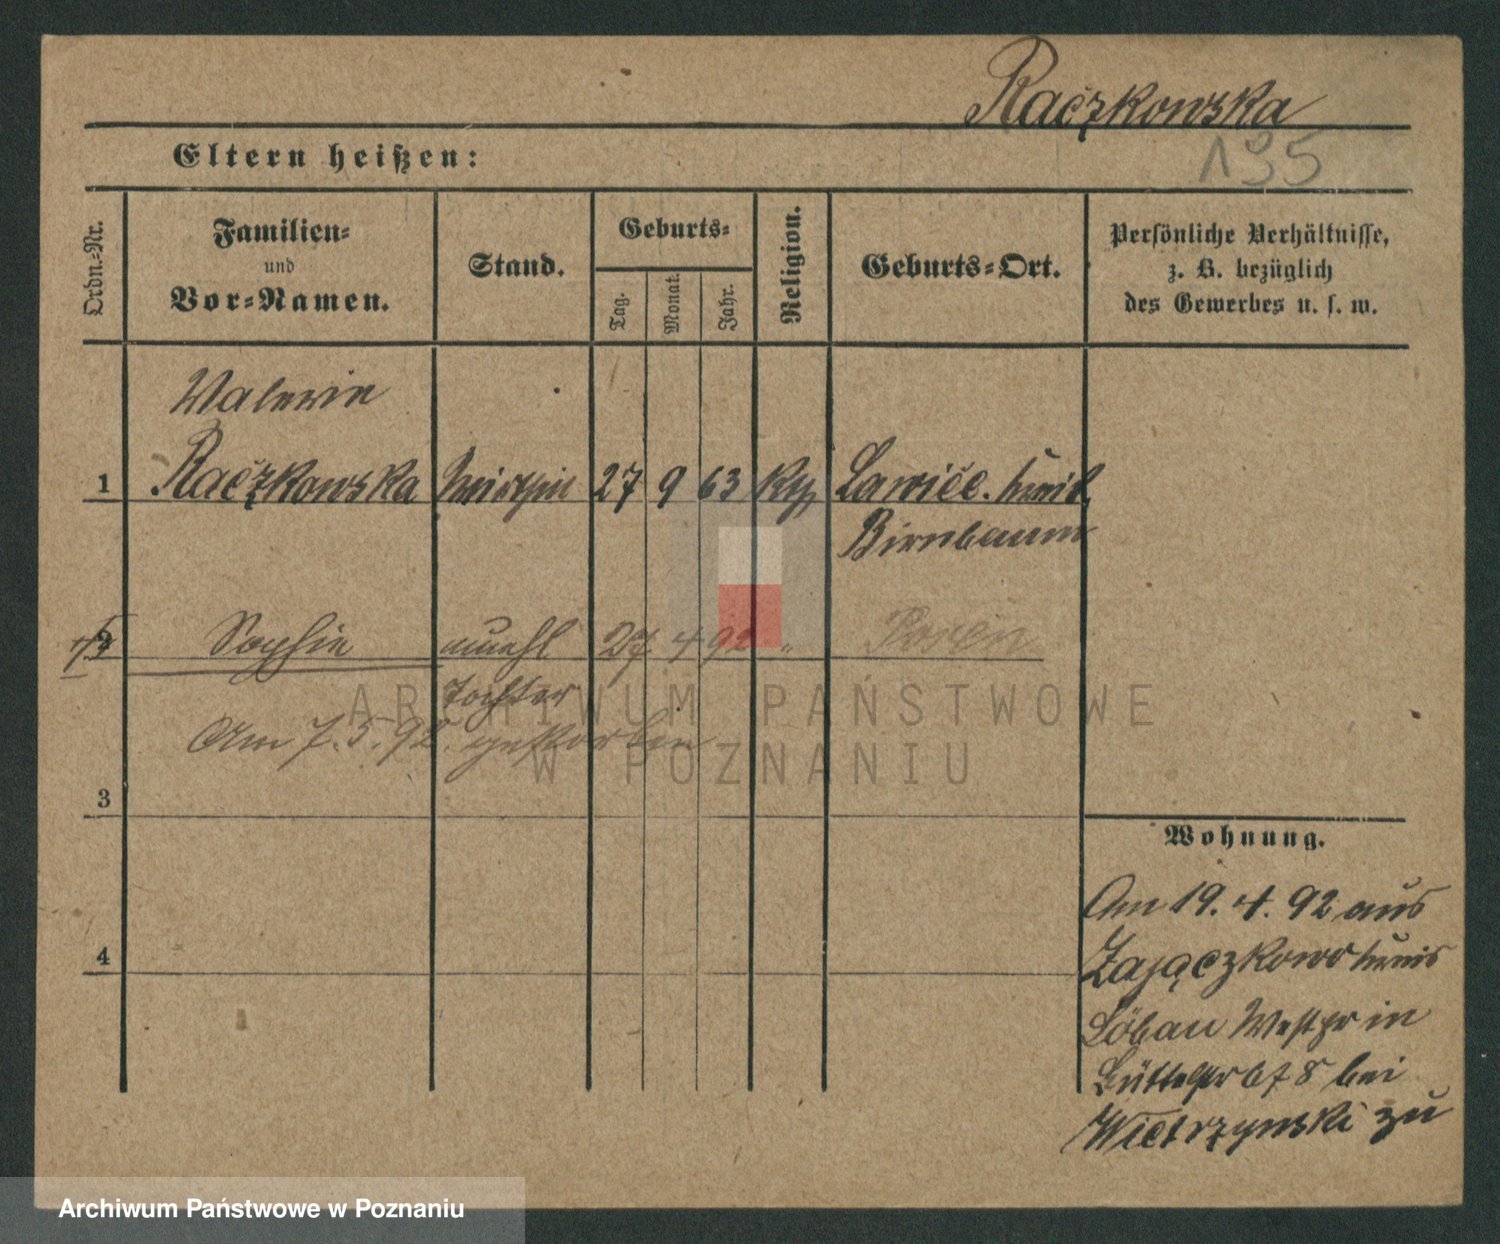 Raczkowska
195
Eltern heißen:
Ordn.-Nr.
Familien-
und
Vor-Namen.
Stand.
Geburts-
Tag.
Monat.
Jahr.
Religion.
Geburts-Ort.
Persönliche Verhältnisse,
z. B. bezüglich
des Gewerbes u. s. w.
Valerie
1 Raczkowska 27 9 63 Birnbaum
2 Sophie unehl 27 4 92 " Posen
Tochter
Am 7. 5. 92. gestorben
3
4
Wohnung.
Am 19. 4. 92 aus
Zajączkowo
Löbau Westpr in
67 8 bei
Wietrzynski zu
ARCHIWUM PAŃSTWOWE
W POZNANIU
Archiwum Państwowe w Poznaniu